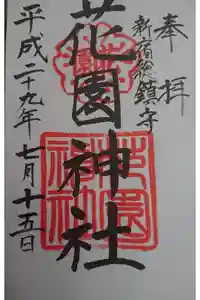 奉拝
新宿総鎮守
花園神社
平成二十九年七月十五日
花園神社